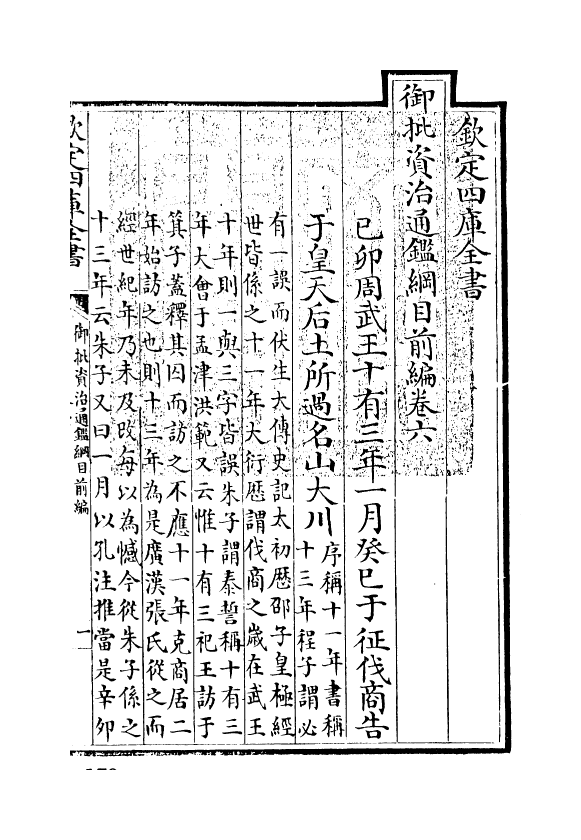 欽定四庫全書
御批資治通鑑綱目前編卷六
己卯周武王十有三年一月癸巳于征伐商告
于皇天后土所過名山大川
序稱十一年書稱
十三年程子謂必
有一誤而伏生大傳史記太初厯邵子皇極經
世皆係之十一年大衍厯謂伐商之嵗在武王
十年則一與三字皆誤朱子謂泰誓稱十有三
年大會于孟津洪範又云惟十有三祀王訪于
箕子蓋釋其囚而訪之不應十一年克商居二
年始訪之也則十三年為是廣漢張氏從之而
經世紀年乃未及改每以為憾今從朱子係之
十三年云朱子又曰一月以孔注推當是辛卯
欽定四庫全書
御批資治通鑑綱目前編
一